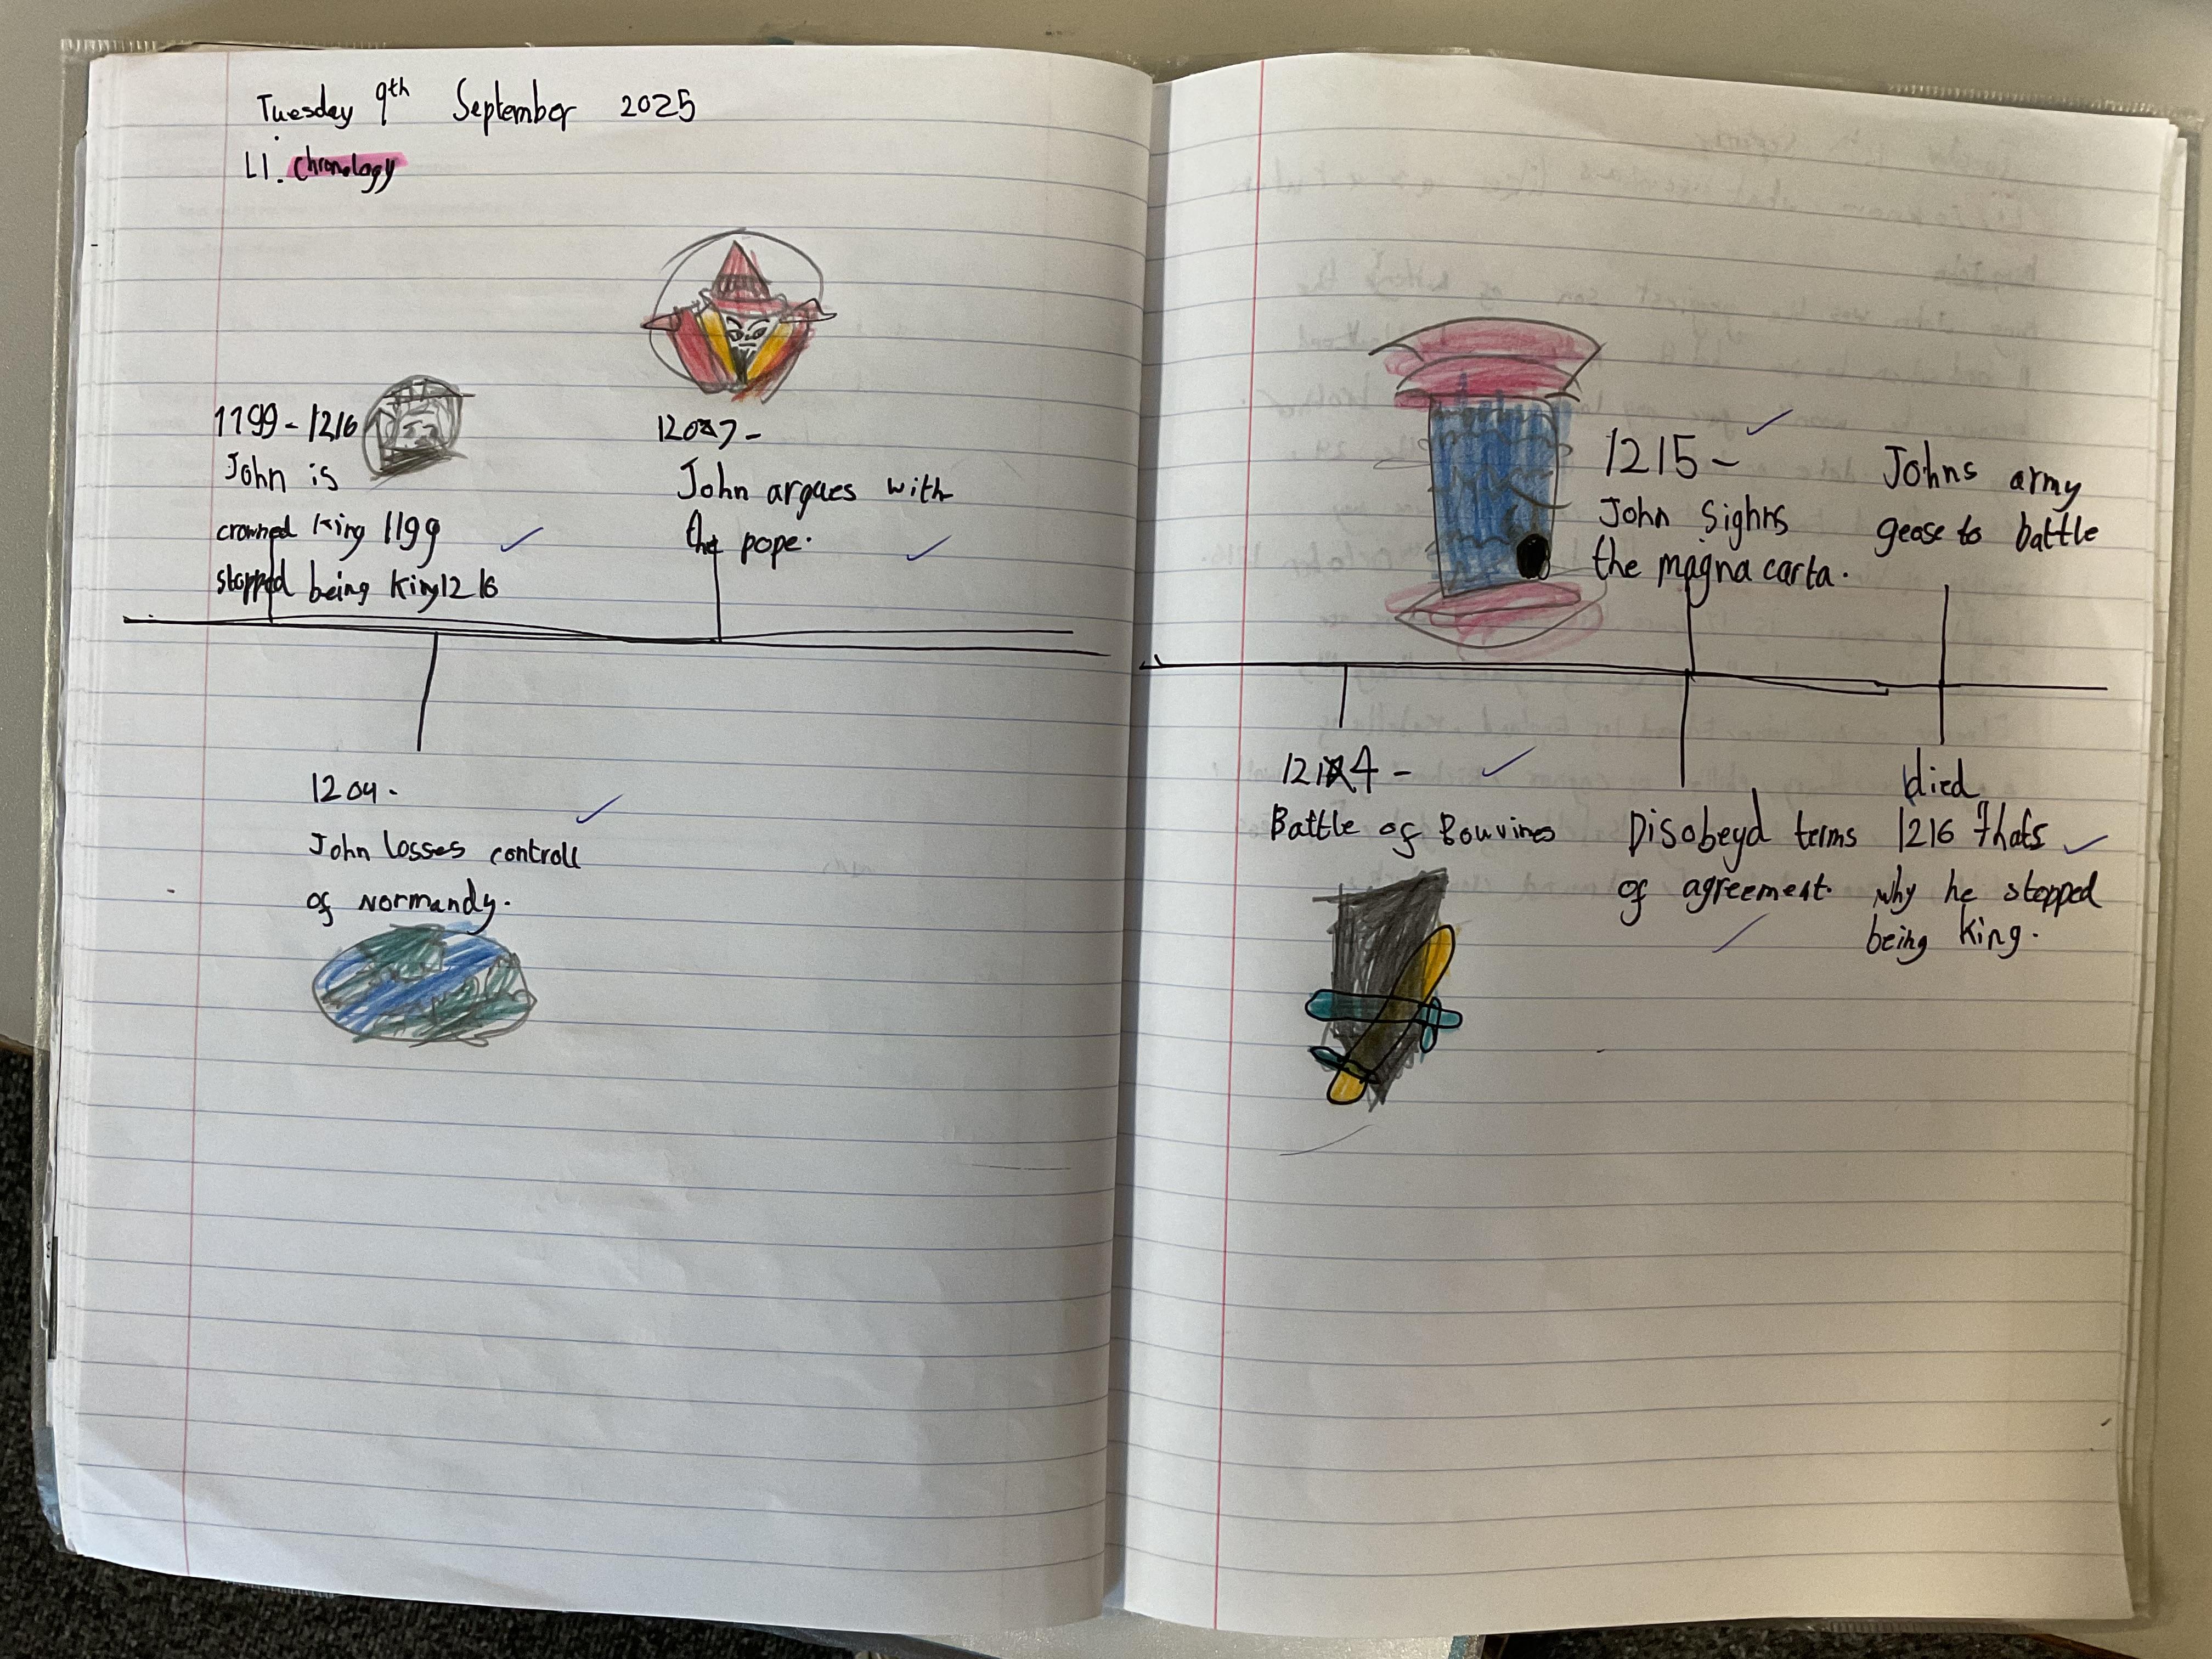 Tuesday 9th September 2025
LI. Chronology
1199 - 1216
John is
crowned King 1199
stopped being King 1216
1207 -
John argues with
the pope.
1204 -
John losses controll
of Normandy.
1215 -
John Sighns
the magna carta.
Johns army
gease to battle
1214 -
Battle of Bouvines
Disobeyd terms
of agreement.
died
1216 thats
why he stopped
being King.